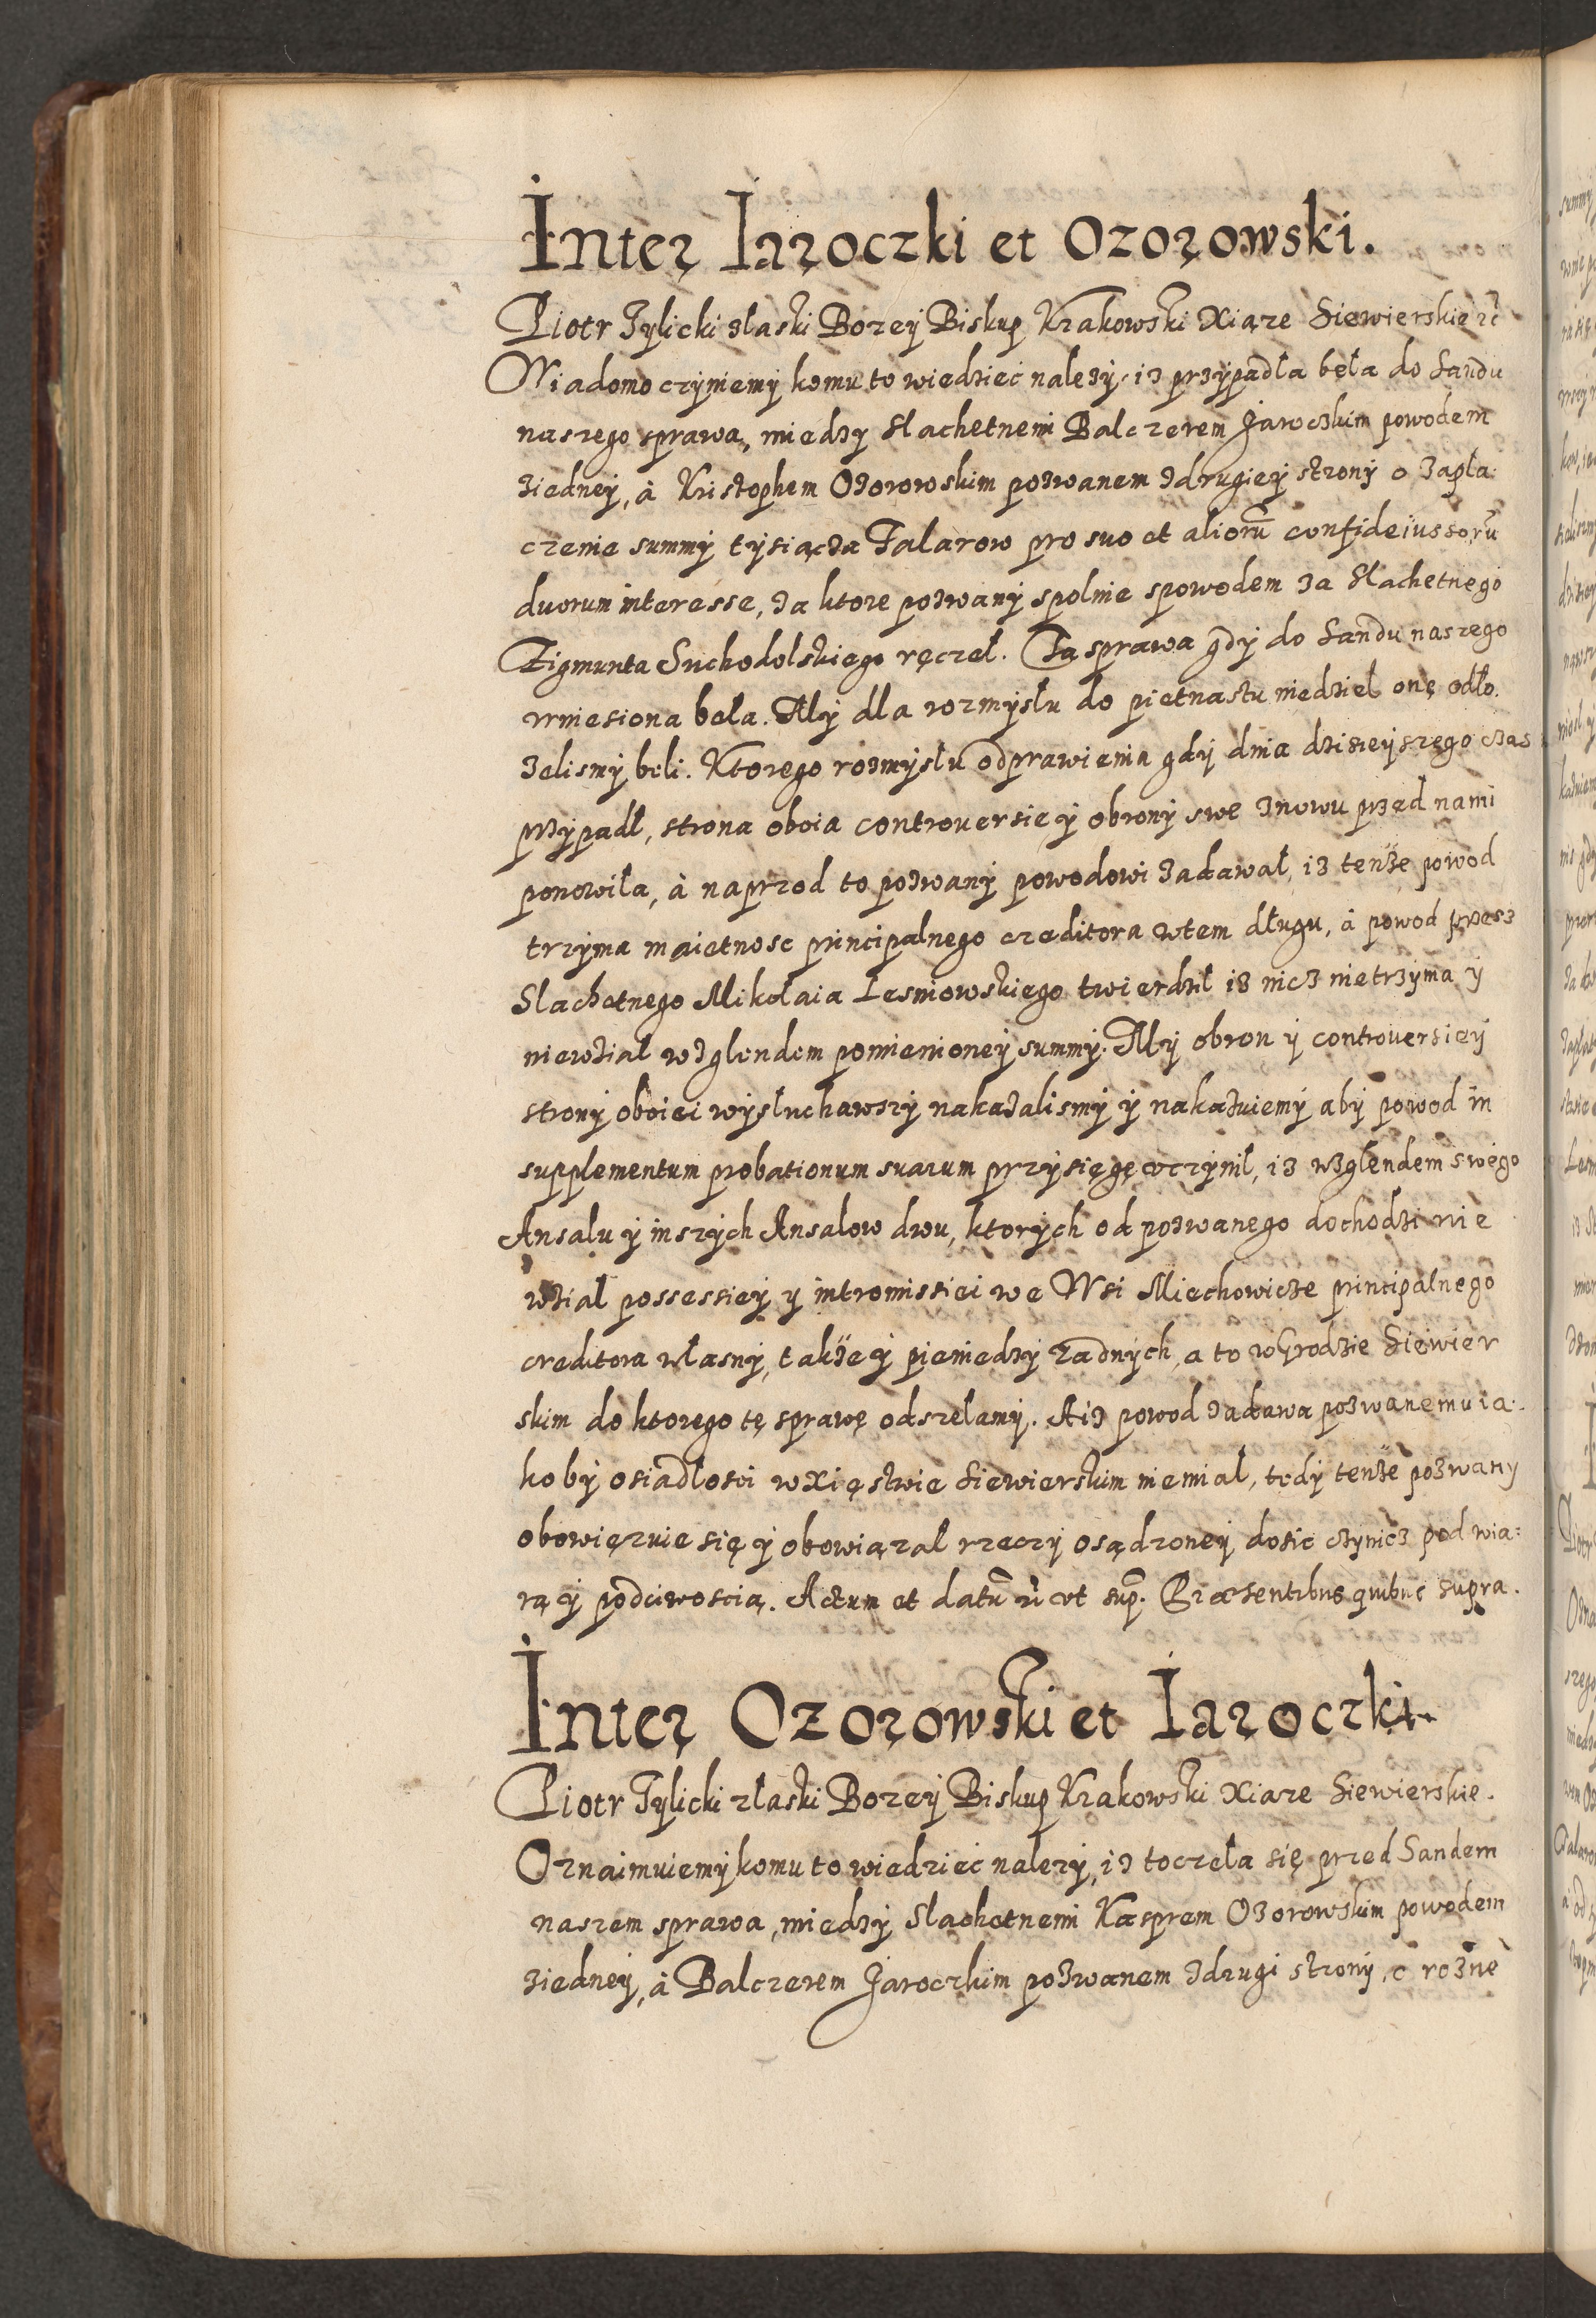 Inter Iaroczki et Ozorowski.
Piotr Tylicki złaski Bozey Biskup Krakowski Xiąze Siewierskie etc
Wiadomo czyniemy komu to wiedzieć nalezy, iz przypadła beła do Sandu
naszego sprawa, miedzy Slachetnemi Balczerem Jaroczkim powodem
ziedney, à Kristophem Ozorowskim pozwanem zdrugiey strony o zapła-
czenie summy tysiącza Talarow pro suo et aliorũ confideiussorũ
duorum interesse, za ktore pozwany spolnie spowodem za Slachetnego
Zigmunta Suchodolskiego ręczeł. Ta sprawa gdy do Sandu naszego
wniesiona beła. My dla rozmysłu do pietnastu niedziel onę odło-
zelismy beli. Ktorego rozmysłu odprawienia gdy dnia dzisieyszego czas
przypadł, strona oboia controuersie y obrony swe znowu przed nami
ponowiła, à naprzod to pozwany powodowi zadawał, iz tenze powod
trzyma maietnosc principalnego creditora wtem długu, à powod przesz
Slachetnego Mikołaia Lesniowskiego twierdził iz nicz nietrzyma y
niewział wzglendem pomienioney summy. My obron y controuersiey
strony oboiei wysłuchawszy nakazalismy y nakazuiemy aby powod in
supplementum probationum suarum przysięgę vczynił, iz wzglendem swego
Ansalu y inszych Ansalow dwu, ktorych od pozwanego dochodzi nie
wział possessiey y intromissiei we Wsi Miechowicze principalnego
creditora własny, takze y pieniedzy zadnych, a to wGrodzie Siewier
skim do ktorego tę sprawę odszełamy. A iz powod zadawa pozwanemu ia-
koby osiadłosci wXięstwie Siewierskim niemiał, tedy tenze pozwany
obowięzuie się y obowiązał rzeczy osądzoney dosic czynicz pod wia-
rą y podciwoscią. Actum et datũ vt sup. Præsentibus quibus supra.
Inter Ozorowski et Iaroczki.
Piotr Tylicki złaski Bozey Biskup Krakowski Xiaze Siewierskie.
Oznaimuiemy komu to wiedzieć nalezy, iz toczeła się przed Sandem
naszem sprawa, miedzy Slachetnemi Kasprem Ozorowskim powodem
ziedney, à Balczerem Jaroczkim pozwanem zdrugi strony, o rozne